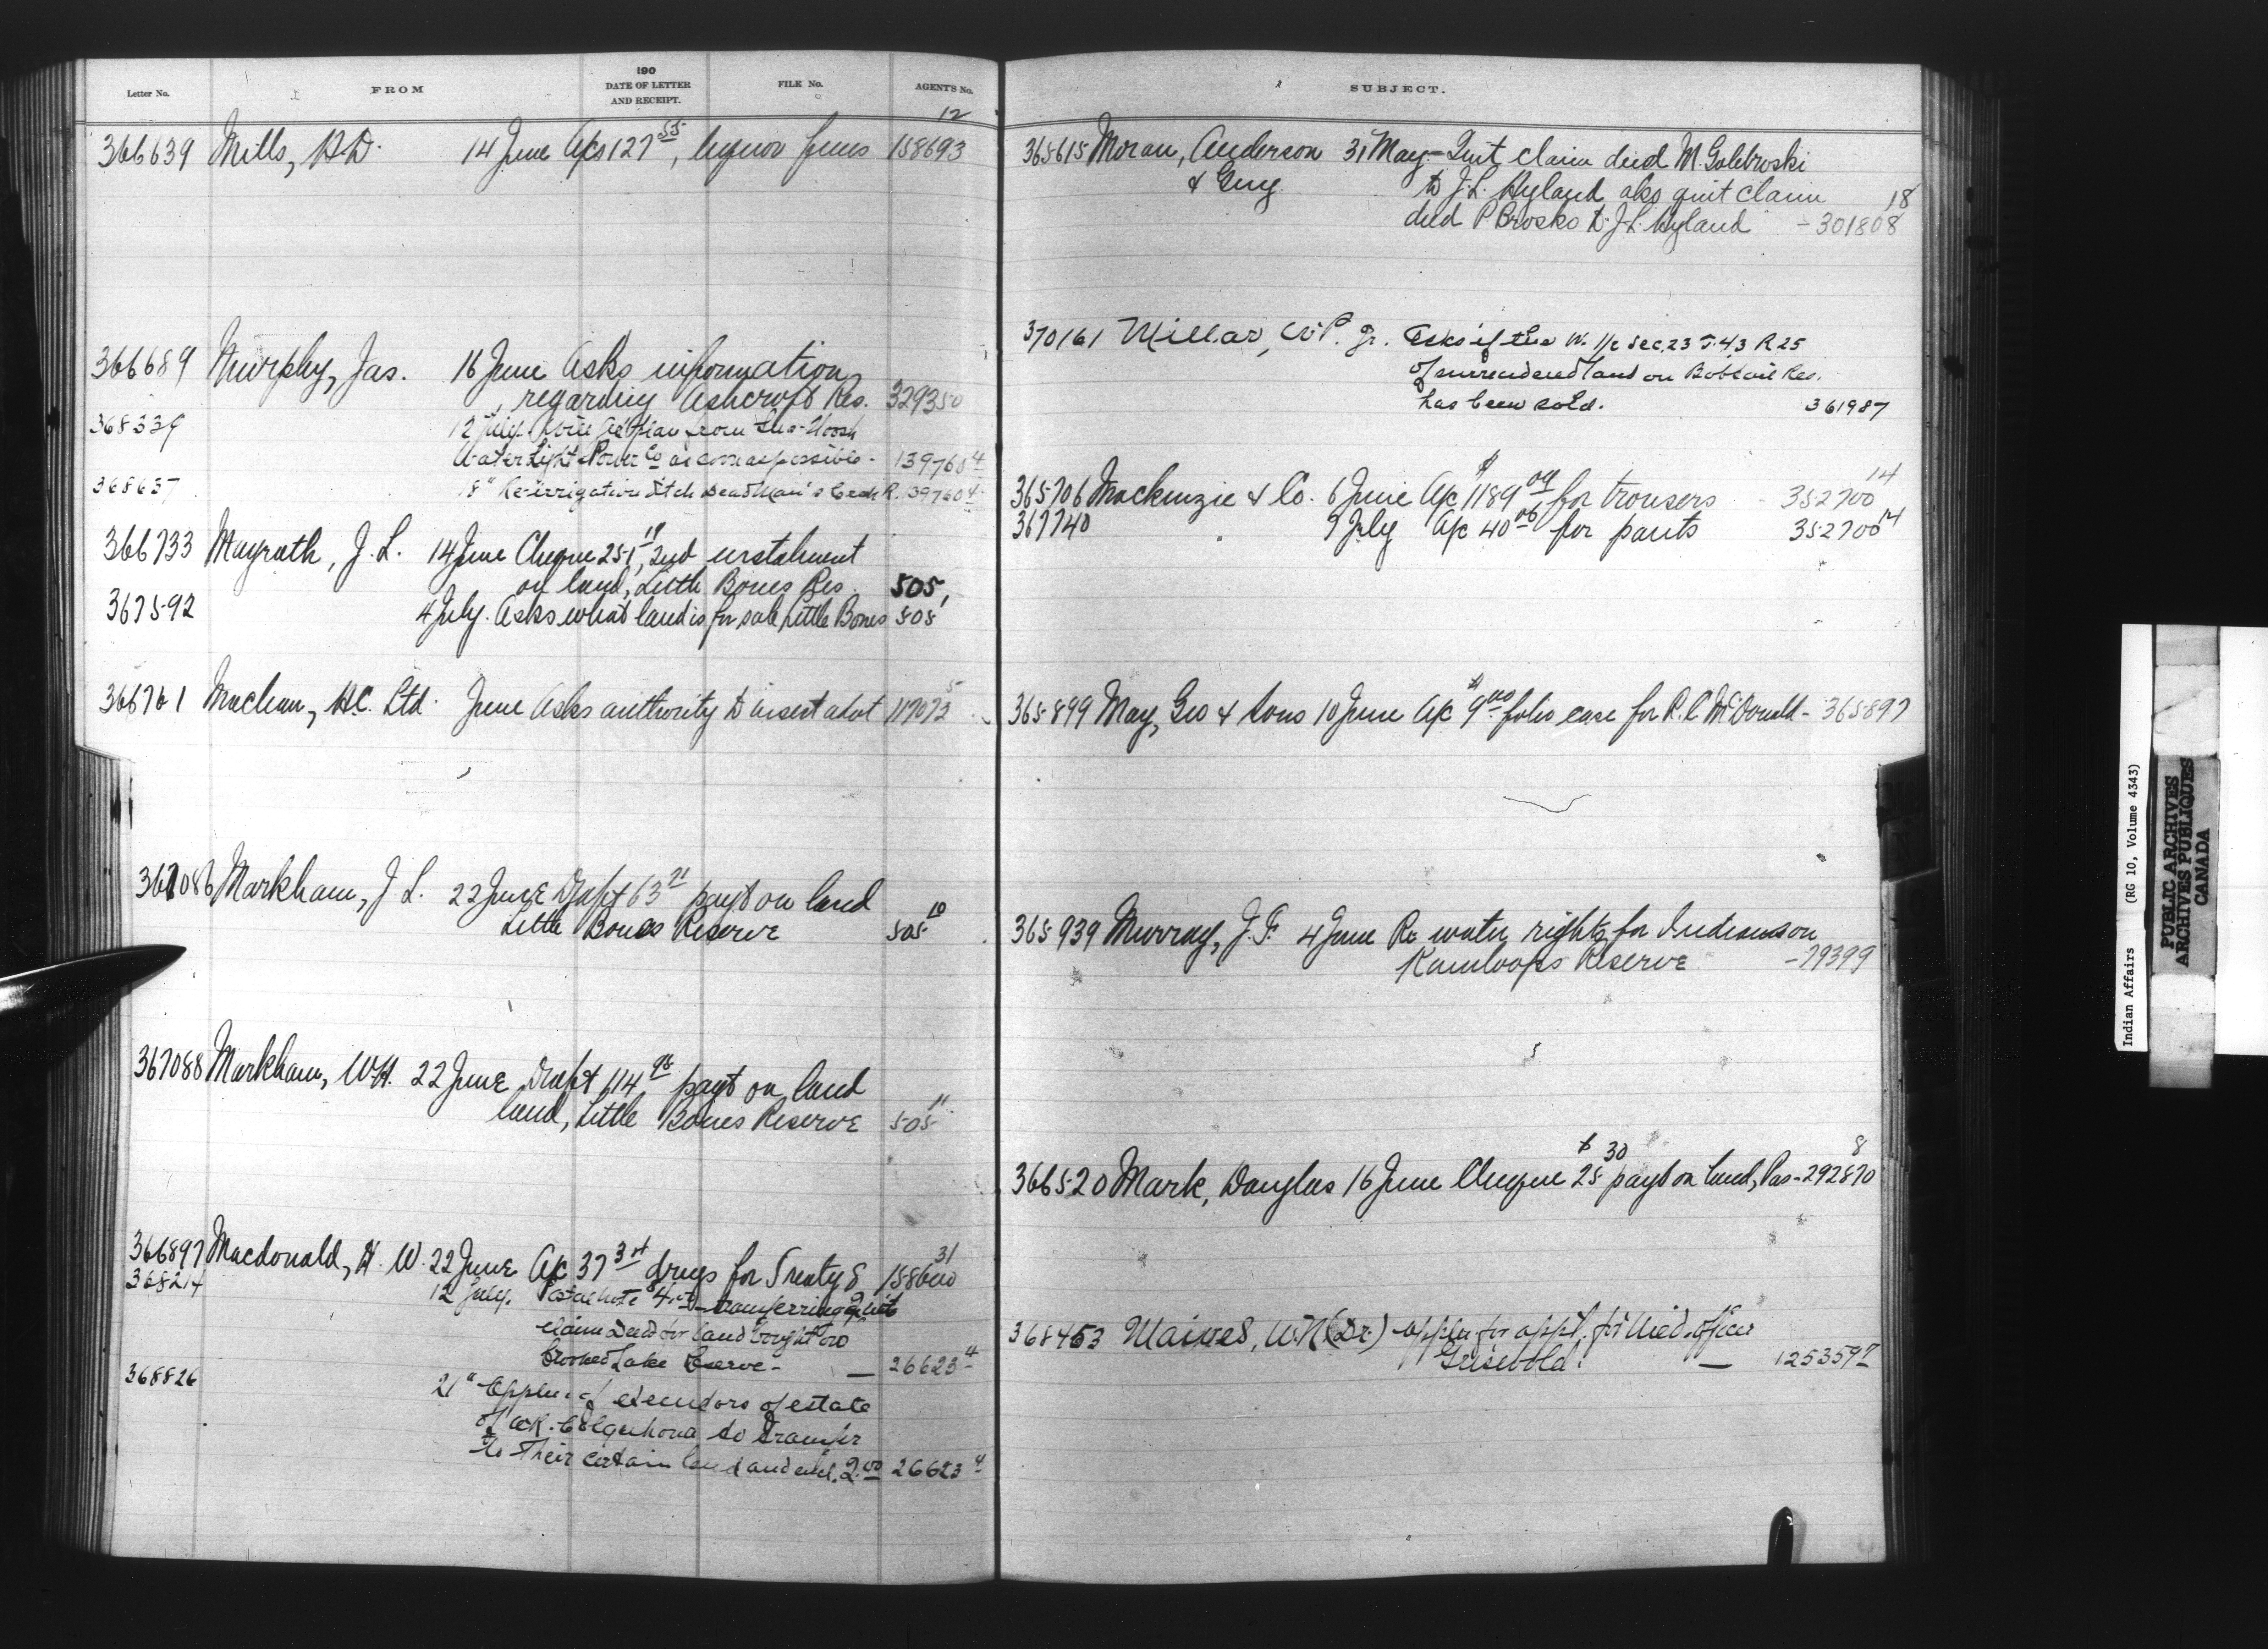 Letter No. FROM 190 DATE OF LETTER AND RECEIPT. FILE No. AGENT'S No.
12
366639 Mills, 14 June A/cs 127 55, liquor fines 158693
366689 Murphy, Jas. 16 June Asks information
regarding Ashcroft Res. 329350
368339 12 July. plan from
Water Light & Power Co as soon as possible - 139760 4
368637 18" Re-irrigation ditch DeadMan's Creek R. 139760 4
366733 Mayrath, J. L. 14 June Cheque 251 19, 2nd instalment
on land, Little Bones Res. 505,
367592 4 July. Asks what land is for sale, Little Bones 505
366761 Maclean, H.C. Ltd. June Asks authority to insert advt 117073 5
367086 Markham, J L. 22 June Draft 63 21 payt on land
Little Bones Reserve 505 10
367088 Markham, W.H. 22 June Draft 114 98 payt on land
land, Little Bones Reserve 505 11
366897 Macdonald, H. W. 22 June A/c 37 drugs for Treaty 8 158600 31
368214 12 July. Postal note transferring quit
claim deed for land bought
Crooked Lake Reserve - — 26623 4
368826 21" of executors of estate
of to transfer
to their certain land and encl. 2.00 26623 4
SUBJECT.
365615 Moran, Anderson 31 May - Quit claim deed M. Golebroski
& Guy to J. L. Hyland also quit claim
deed P. Brosko to J. L. Hyland - 301808 18
370161 Millar, W. P. Jr. Asks if the W. 1/2 Sec. 23 T. 43 R 25
of surrendered land on Bobtail Res.
has been sold. 361987
365706 Mackenzie & Co. 6 June A/c $1189 for trousers 352700 14
367740 9 July A/c 40 for pants 352700 14
365899 May, Geo & Sons 10 June A/c $9 00 folio case for R. C McDonald - 365897
365939 Murray, J. F. 4 June Re water rights for Indians on
Kamloops Reserve - 79399
366520 Mark, Douglas 16 June Cheque $25 30 payt on land, Pas - 292870 8
368453 (Dr.) for appt. for Med. officer
Griswold. — 125359 7
Indian Affairs (RG 10, Volume 4343)
PUBLIC ARCHIVES
ARCHIVES PUBLIQUES
CANADA